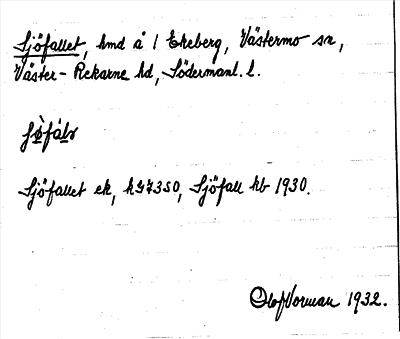 Sjöfallet, hmd å 1 Ekeberg, Västermo sn,
Väster-Rekarne hd, Södermanl. l.
Sjöfallet ek, kG7350, Sjöfall hb 1930.
Olof Norman 1932.